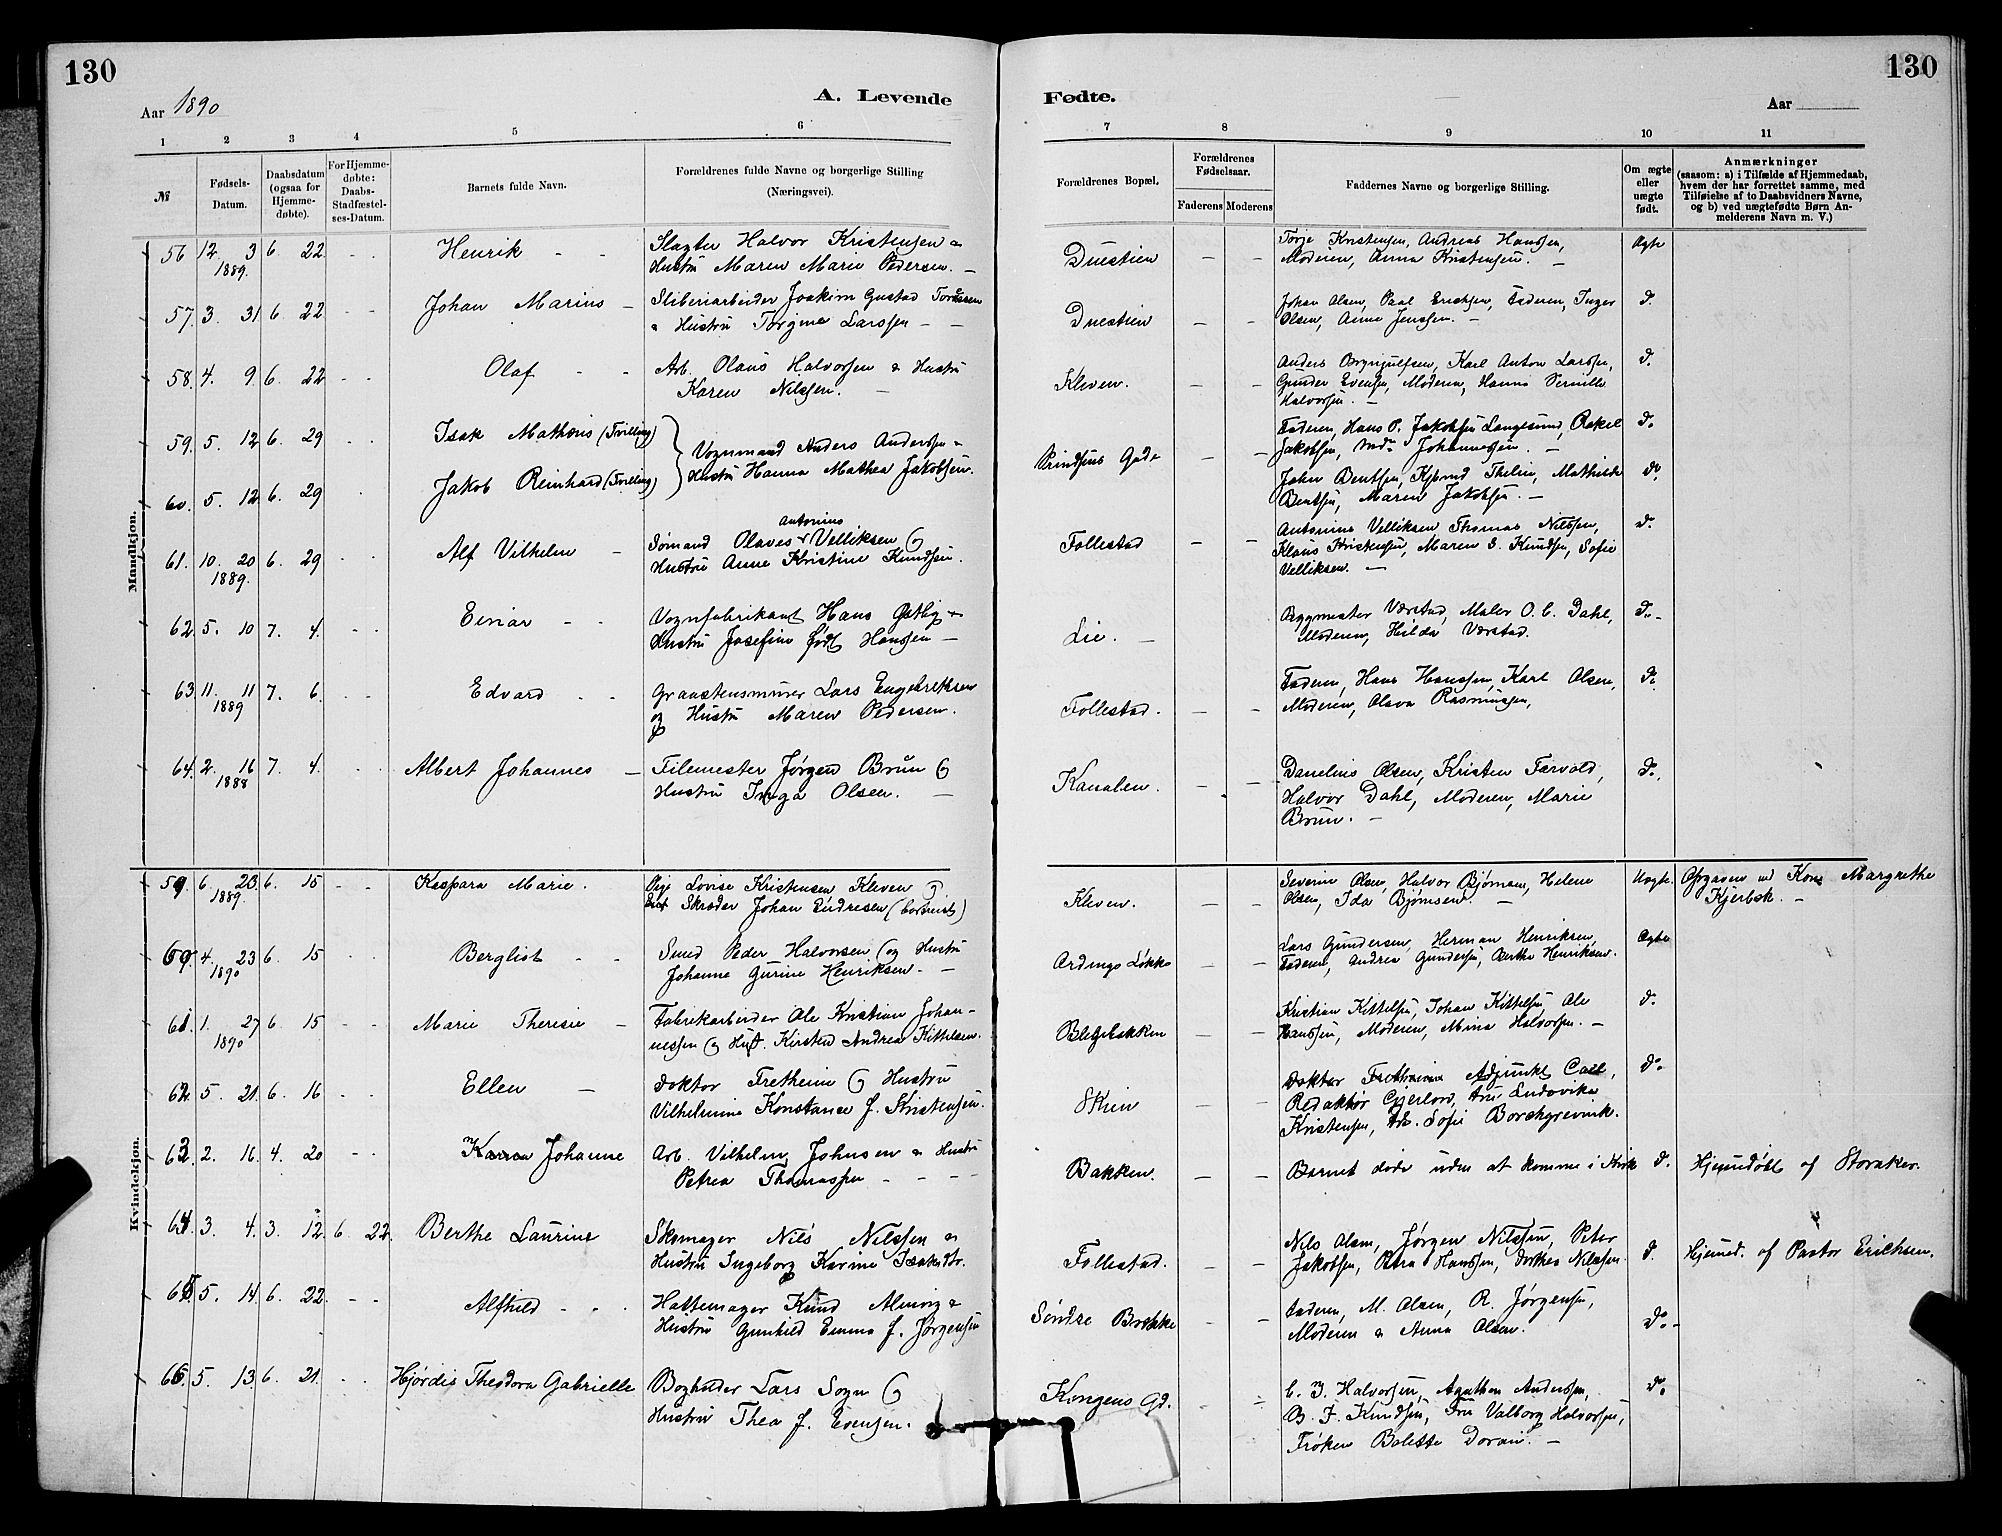 130
130
Aar 1890
A. Levende
Fødte.
Aar
1 2 3 4 5 6 7 8 9 10 11
№
Fødsels-Datum.
Daabsdatum (ogsaa for Hjemme-døbte).
For Hjemme-døbte: Daabs-Stadfæstel-ses-Datum.
Barnets fulde Navn.
Forældrenes fulde Navne og borgerlige Stilling
(Næringsvei).
Forældrenes Bopæl.
Forældrenes Fødselsaar.
Faderens Moderens
Faddernes Navne og borgerlige Stilling.
Om ægte eller uægte født.
Anmærkninger
(saasom: a) i Tilfælde af Hjemmedaab,
hvem der har forrettet samme, med
Tilføielse af to Daabsvidners Navne,
og b) ved uægtefødte Børn An-
melderens Navn m. V.)
Mandkjøn.
56 12. 3 6. 22 - - Henrik - - Slagter Halvor Kristensen & Duestien - - Torje Kristensen, Andreas Hanssen, Ægte
1889. Hustru Maren Marie Pedersen. - Moderen, Anna Kristensen. -
57. 3. 31. 6. 22 - - Johan Marius - Sliberiarbeider Joakim Gustad Duestien - - Johan Olsen, Paul Erichsen, Faderen, Inger D.
& Hustru Torgine Larssen - - Olsen, Anne Jenssen. -
58. 4. 9. 6. 22 - - Olaf - - Arb. Olaus Halvorsen & Hustru Kleven. - - Anders Brynjulfsen, Karl Anton Larssen, D.
Karen Nilssen. - Gunder Evensen, Moderen, Hanna
Halvorsen. -
59. 5. 12. 6. 29 - - Isak Mathæus (Tvilling) Vognmand Anders Anderssen & Prindsens Gade - - Faderen, Hans P. Jakobsen Langesund, Rakel D.
Hustru Hanna Mathea Jakobsen. Jakobsen, Johannessen. -
60. 5. 12. 6. 29 Jakob Reinhard (Tvilling) John Bentsen, Thelin, Mathilde Do
Bentsen, Maren Jakobsen. -
61. 10. 20 6. 29 - - Alf Vilhelm - Sømand Olaves Antonius Velliksen og Follestad - - Antonius Velliksen Thomas Nilssen, D.
1889. Hustru Anne Kristine Knudsen. Klaus Kristensen, Maren S. Knudsen, Sofie
Velliksen. -
62. 5. 10 7. 4. - - Einar - - Vognfabrikant Hans & Lie. - Bygmester Værstad, Maler O. C. Dahl, Do.
Hustru Josefine født Hansen - Moderen, Hilda Værstad.
63. 11. 11 7. 6. - - Edvard - - Granstensmurer Lars Engebretsen Follestad. - - Faderen, Hans Hanssen, Karl Olsen, D.
1889 og Hustru Maren Pedersen. Moderen, Olava Rasmussen,
64. 2. 16 7. 4. - - Albert Johannes - Filemester Jørgen Brun og Kanalen. - - Danelius Olsen, Kristen Farvold, Do.
1888 Hustru Inga Olsen. - Halvor Dahl, Moderen, Marie
Brun. -
Kvindekjøn.
59. 6. 23. 6. 15 - - Kaspara Marie. Pige Lovise Kristensen Kleven og Kleven. - - Severin Olsen, Halvor Bjørnsen, Helene Uægte. Opgaven ved Kone Margrethe
1889. Skræder Johan Endresen (bortreist) Olsen, Ida Bjørnsen. - Kjerbek. -
60. 4. 23 6. 15 Bergliot - - Smed Peder Halvorsen og Hustru Ardings Løkke - - Lars Gundersen, Herman Henriksen, Ægte
1890 Johanne Gurine Henriksen. - Faderen, Andrea Gundersen, Berthe Henriksen.
61. 1. 27 6. 15 - - Marie Theresie - Fabrikarbeider Ole Kristian Johan- Blegebakken - - Kristian Kittelsen, Johan Kittelsen Ole D.
1890 nessen og Hust. Kirsten Andrea Kittelsen. Hanssen, Moderen, Mina Halvorsen. -
62. 5. 21. 6. 16 - - Ellen - Doktor Fretheim og Hustru Skien - - Doktor Fretheim Adjunkt Do
Vilhelmine Konstance f. Kristensen. Redaktør Fru Ludovika
Kristensen, Frk. Sofie Borchgrevink.
63. 2. 16. 4. 20 - - Karen Johanne Arb. Vilhelm Johnsen & Hustru Bakken. - - Barnet døde uden at komme i Kirke D. Hjemdøbt af Storaker.
Petrea Thomassen - - - -
64. 3. 4. 3. 12. 6 22. Berthe Laurine Skomager Nils Nilssen & Follestad. - - Nils Olsen, Jørgen Nilssen, Peter D. Hjemd. af Pastor Erichsen.
Hustru Ingeborg Karine Isaksdtr. Jakobsen, Petra Hanssen, Dorthea Nilssen.
65. 5. 14. 6. 22. - - Alfhild - - Hattemager Knud & Søndre Brække - - Faderen, M. Olsen, R. Jørgensen, Do. -
Hustru Gunhild Emma f. Jørgensen Moderen & Anna Olsen.
66. 5. 13. 6. 21. - - Hjørdis Theodora Gabrielle Bogholder Lars Sogn og Kongens Gd. - - C. J. Halvorsen, Agathon Anderssen, Do
Hustru Thea f. Evensen. B. F. Knudsen, Fru Valborg Halvorsen,
Frøken Bolette